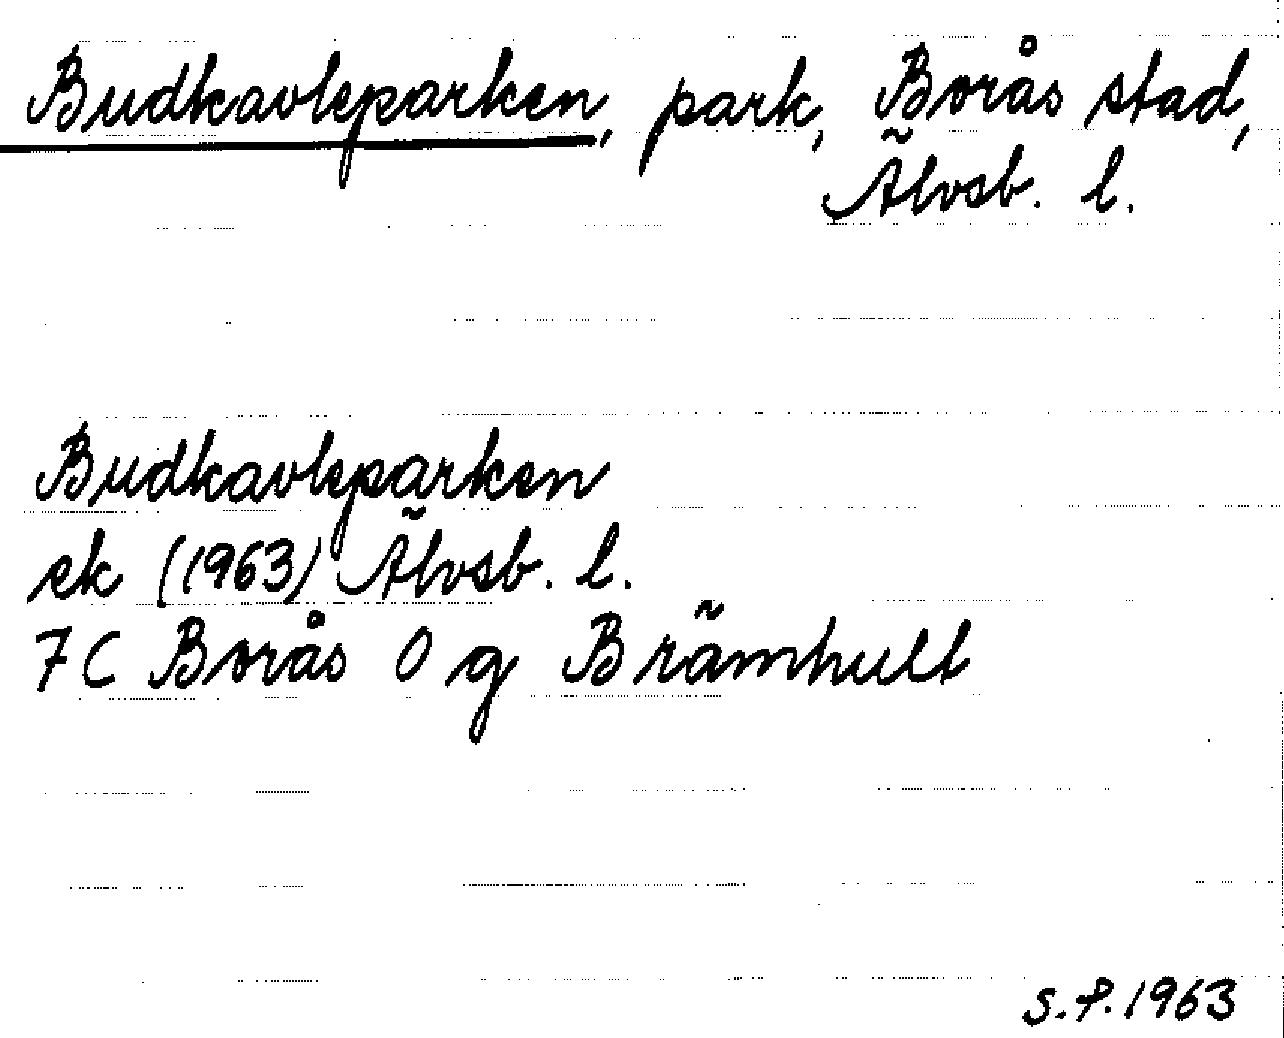 Budkavleparken, park, Borås stad,
Älvsb. l.
Budkavleparken
ek (1963) Älvsb. l.
7C Borås 0 g Brämhult
S.P. 1963